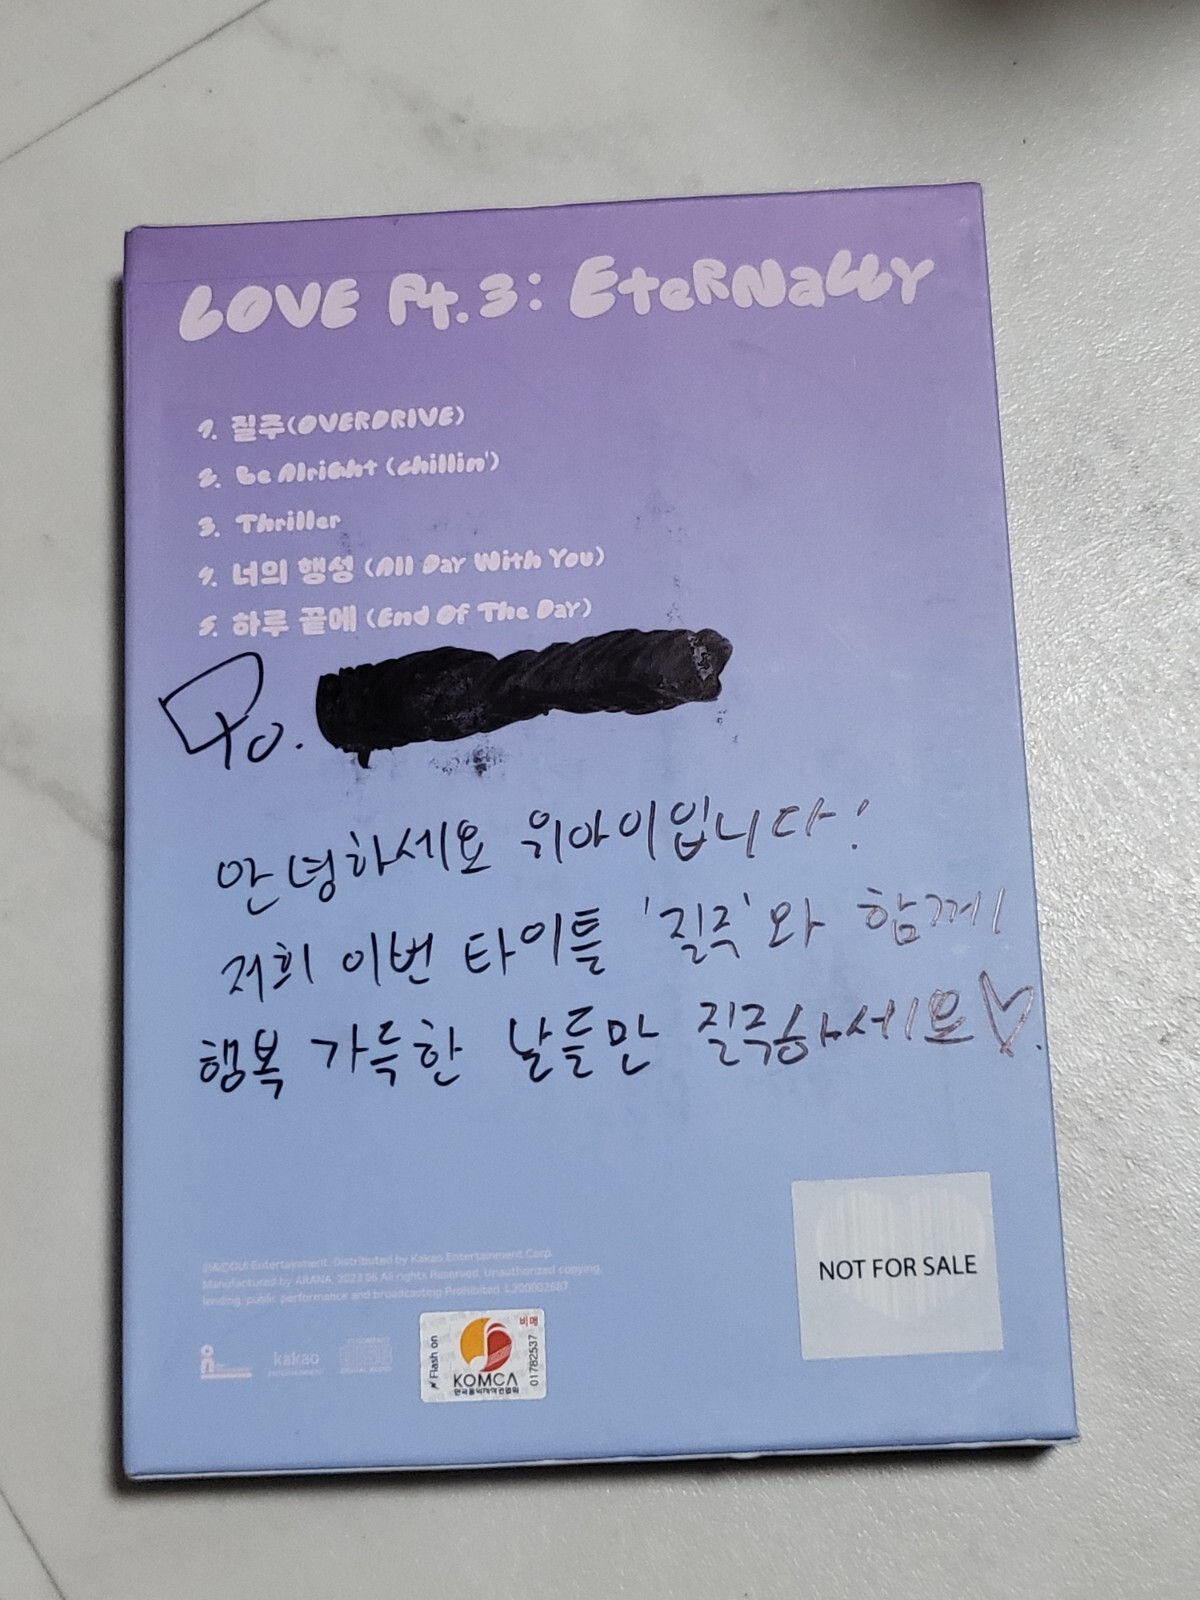 LOVE Pt.3: EteRNaLLY
1. 질주(OVERDRIVE)
2. Be Alright (chillin')
3. Thriller
4. 너의 행성 (All Day With You)
5. 하루 끝에 (End Of The Day)
To.
안녕하세요 위아이입니다!
저희 이번 타이틀 '질주'와 함께
행복 가득한 날들만 질주하세요♡.
NOT FOR SALE
Entertainment. Distributed by Kakao Entertainment Corp.
Manufactured by ARANA. 2023.06 All rights Reserved. Unauthorized copying,
lending, public performance and broadcasting Prohibited. L200002687
kakao
Flash on
KOMCA
한국음악저작권협회
비매
01782537